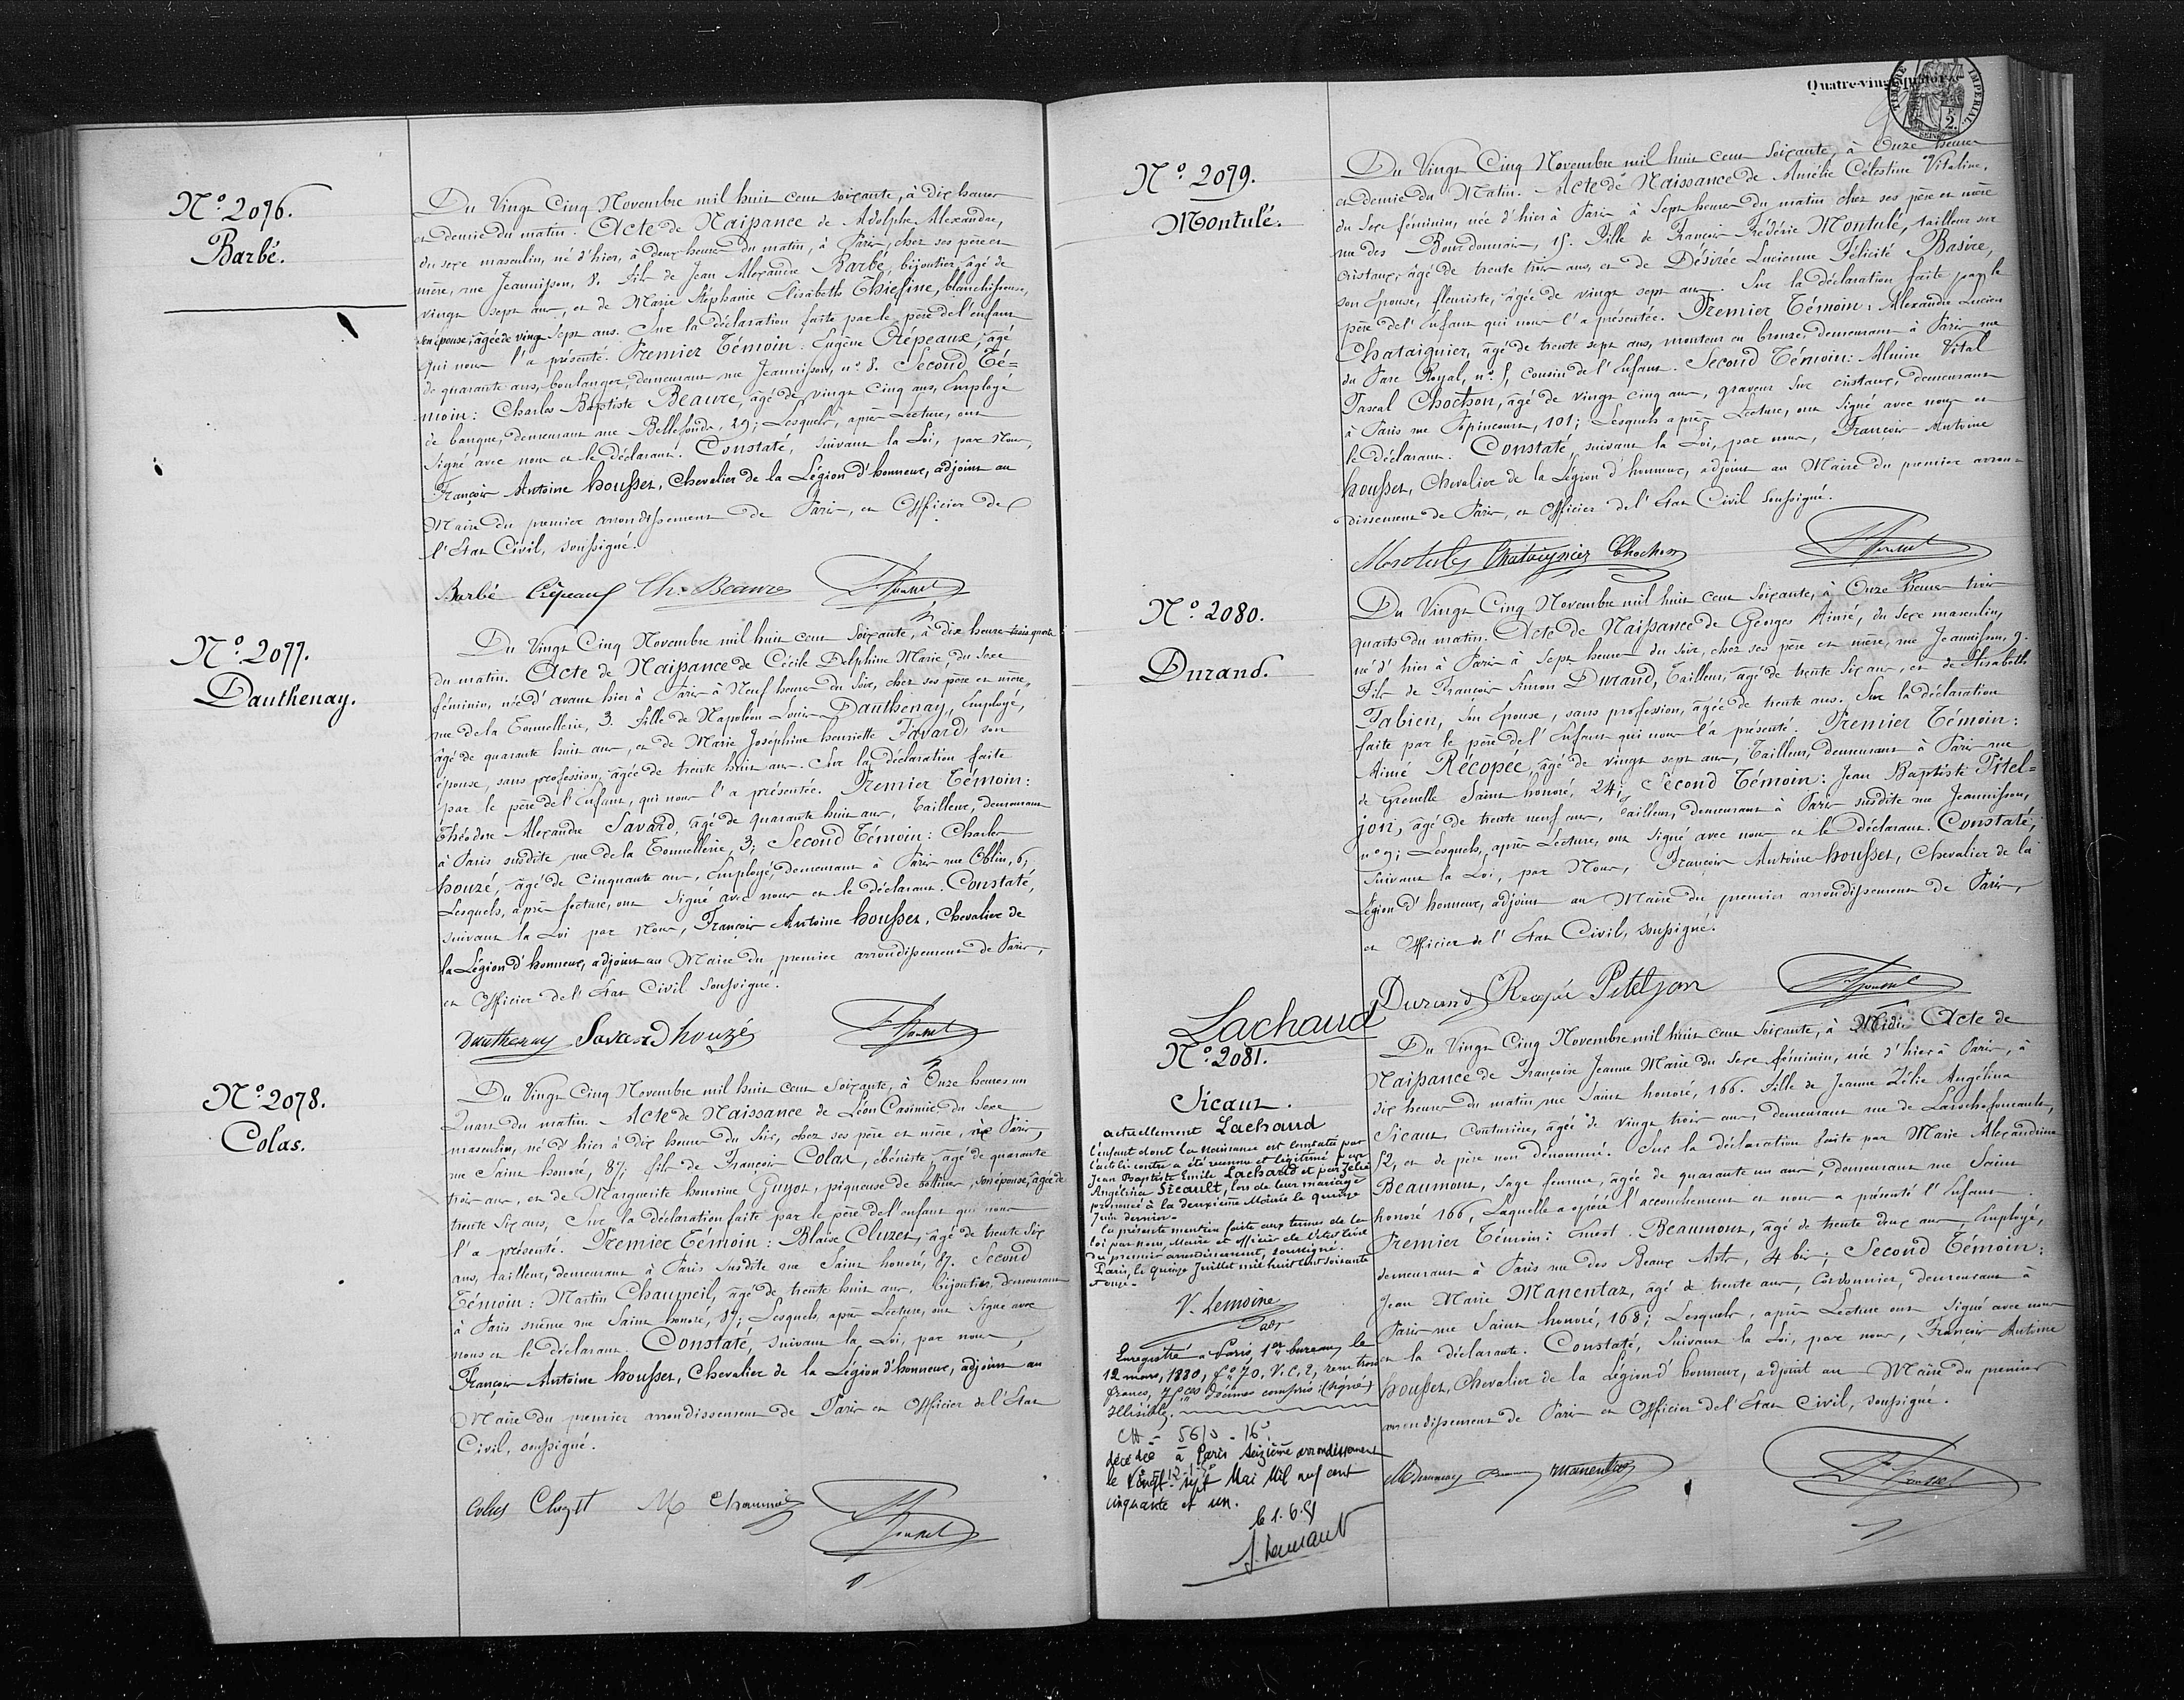 N° 2076.
Barbé.
Du Vingt Cinq Novembre mil huit cent soixante, à dix heures
et demie du matin. Acte de Naissance de Adolphe Alexandre,
du sexe masculin, né d'hier, à deux heures du matin, à Paris, chez ses père et
mère, rue Jeannisson, 8. fils de Jean Alexandre Barbé, bijoutier, âgé de
vingt sept ans, et de Marie Stéphanie Elisabeth Thiefine, blanchisseuse,
son épouse, âgée de vingt sept ans. Sur la déclaration faite par le père de l'enfant
qui nous l'a présenté. Premier Témoin: Eugène Crépeaux, âgé
de quarante ans, boulanger, demeurant rue Jeannisson, n° 8. Second Té=
moin: Charles Baptiste Beaure, âgé de vingt cinq ans, Employé
de banque, demeurant rue Bellefonds, 29; Lesquels, après Lecture, ont
signé avec nous et le déclarant. Constaté, suivant la Loi, par Nous,
François Antoine housset, Chevalier de la Légion d'honneur, adjoint au
Maire du premier arrondissement de Paris, et Officier de
l'Etat Civil, soussigné.
Barbé Crépeaux Ch. Beaure
N° 2077.
Dauthenay.
Du Vingt Cinq Novembre mil huit cent soixante, à dix heures trois quarts
du matin. Acte de Naissance de Cécile Delphine Marie, du sexe
féminin, née d'avant hier à Paris à Neuf heures du Soir, chez ses père et mère,
rue de la Tonnellerie, 3. fille de Napoléon Louis Dauthenay, Employé,
âgé de quarante huit ans, et de Marie Joséphine henriette Favard, son
épouse, sans profession, âgée de trente huit ans. Sur la déclaration faite
par le père de l'Enfant, qui nous l'a présentée. Premier Témoin:
Théodore Alexandre Savard, âgé de quarante huit ans, Tailleur, demeurant
à Paris susdite rue de la Tonnellerie, 3; Second Témoin: Charles
houzé, âgé de Cinquante ans, Employé, demeurant à Paris rue Oblin, 6;
Lesquels, après lecture, ont signé avec nous et le déclarant. Constaté,
suivant la Loi par Nous, François Antoine housset, Chevalier de
la Légion d'honneur, adjoint au Maire du premier arrondissement de Paris,
et Officier de l'Etat Civil soussigné.
Dauthenay Savard houzé
N° 2078.
Colas.
Du Vingt Cinq Novembre mil huit cent soixante, à Onze heures un
Quart du matin. Acte de Naissance de Léon Casimir, du Sexe
masculin, né d'hier à Dix heures du Soir, chez ses père et mère, à Paris,
rue Saint honoré, 87; fils de François Colas, ébéniste, âgé de quarante
trois ans, et de Marguerite honorine Guyot, piqueuse de bottines, son épouse, âgée de
trente six ans, Sur la déclaration faite par le père de l'enfant qui nous
l'a présenté. Premier Témoin: Blaise Cluzet, âgé de trente six
ans, tailleur, demeurant à Paris susdite rue Saint honoré, 87. Second
Témoin: Martin Chaumeil, âgé de trente huit ans, bijoutier, demeurant
à Paris même rue Saint honoré, 87; Lesquels, après Lecture, ont signé avec
nous et le déclarant. Constaté, suivant la Loi, par nous,
François Antoine housset, Chevalier de la Légion d'honneur, adjoint au
Maire du premier arrondissement de Paris et Officier de l'Etat
Civil, soussigné.
Colas Cluzet M Chaumeil
Quatre-vingt-quatorze
TIMBRE IMPERIAL
2.
SEINE
N° 2079.
Montulé.
Du Vingt Cinq Novembre mil huit cent soixante, à Onze heures
et demie du Matin. Acte de Naissance de Amélie Célestine Vitaline,
du Sexe féminin, née d'hier à Paris à Sept heures du matin chez ses père et mère
rue des Bourdonnais, 15. Fille de François Frédéric Montulé, tailleur sur
cristaux, âgé de trente trois ans, et de Désirée Lucienne Félicité Basire,
son épouse, fleuriste, âgée de vingt sept ans. Sur la déclaration faite par le
père de l'enfant qui nous l'a présentée. Premier Témoin: Alexandre Lucien
Chataignier, âgé de trente sept ans, monteur en bronze, demeurant à Paris rue
du Parc Royal, n° 5, cousin de l'Enfant. Second Témoin: Alnire Vital
Pascal Chochon, âgé de vingt cinq ans, graveur sur cristaux, demeurant
à Paris rue Popincourt, 101; Lesquels après Lecture, ont signé avec nous et
le déclarant. Constaté, suivant la Loi, par nous, François Antoine
housset, Chevalier de la Légion d'honneur, adjoint au Maire du premier arron=
dissement de Paris, et Officier de l'Etat Civil soussigné.
Montulé Chataignier Chochon
N° 2080.
Durand.
Du Vingt Cinq Novembre mil huit cent soixante, à Onze heures trois
quarts du matin. Acte de Naissance de Georges Aimé, du sexe masculin,
né d'hier à Paris à sept heures du soir, chez ses père et mère, rue Jeannisson, 9.
Fils de François Simon Durand, Tailleur, âgé de trente six ans, et de Elisabeth
Fabien, son épouse, sans profession, âgée de trente ans. Sur la déclaration
faite par le père de l'Enfant qui nous l'a présenté. Premier Témoin:
Aimé Récopée, âgé de vingt sept ans, Tailleur, demeurant à Paris rue
de Grenelle Saint honoré, 24; Second Témoin: Jean Baptiste Pitel=
jon, âgé de trente neuf ans, Tailleur, demeurant à Paris susdite rue Jeannisson,
n° 9; Lesquels, après Lecture, ont signé avec nous et le déclarant. Constaté,
suivant la Loi, par Nous, François Antoine housset, Chevalier de la
Légion d'honneur, adjoint au Maire du premier arrondissement de Paris,
et Officier de l'Etat Civil, soussigné.
Durand Recopée Piteljon
Lachaud
N° 2081.
Sicaut.
actuellement Lachaud
L'enfant dont la naissance est constatée par
l'acte ci-contre a été reconnu et légitimé par
Jean Baptiste Emile Lachaud et par Zélie
Angélina Sicault, lors de leur mariage
prononcé à la deuxième Mairie le quinze
Juin dernier.
La présente mention faite aux termes de la
loi par nous, Maire et officier de l'état civil
du premier arrondissement, soussigné.
Paris, le quinze Juillet mil huit cent soixante
et onze.
V. Lemoine
adt
Enregistré à Paris, 1er bureau, le
12 mars, 1880, f° 70, V. C. 2, reçu trois
francs, 75ces décimes compris (signé)
Illisible.
CH - 5610 - 16°
décédée à Paris Seizième arrondissement
le Vingt-sept Mai Mil neuf cent
cinquante et un.
le 1.6.51
Du Vingt Cinq Novembre mil huit cent soixante, à Midi. Acte de
Naissance de Françoise Jeanne Marie du sexe féminin, née d'hier à Paris, à
dix heures du matin, rue Saint honoré, 166. Fille de Jeanne Zélie Angélina
Sicaut, Couturière, âgée de vingt trois ans, demeurant rue de Larochefoucault,
52, et de père non dénommé. Sur la déclaration faite par Marie Alexandrine
Beaumont, Sage femme, âgée de quarante un ans, demeurant rue Saint
honoré 166, Laquelle a opéré l'accouchement et nous a présenté l'Enfant.
Premier Témoin: Ernest Beaumont, âgé de trente deux ans, Employé,
demeurant à Paris rue des Beaux Arts, 4 bis; Second Témoin:
Jean Marie Manentaz, âgé de trente ans, Cordonnier, demeurant à
Paris rue Saint honoré, 168; Lesquels, après Lecture ont signé avec nous
et la déclarante. Constaté, suivant la Loi, par nous, François Antoine
housset, Chevalier de la Légion d'honneur, adjoint au Maire du premier
arrondissement de Paris et Officier de l'Etat Civil, soussigné.
Manentaz